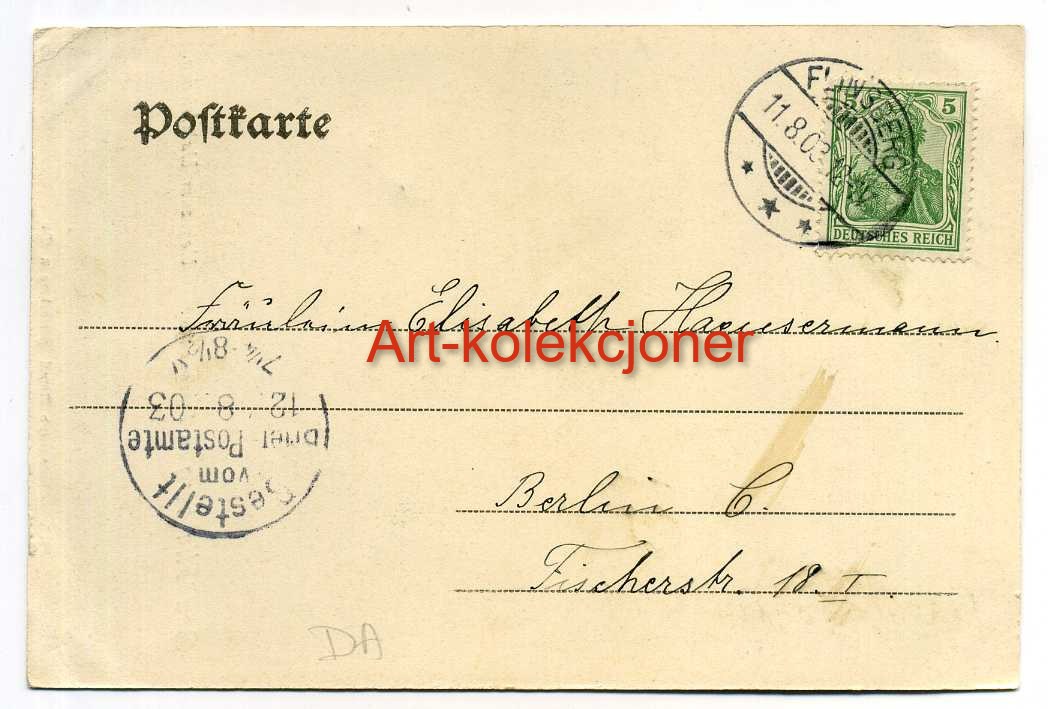 Postkarte
FLINSBERG
11.8.03
5 5
DEUTSCHES REICH
Fräulein Elisabeth Haeusermann.
Art-kolekcjoner
Berlin C.
Fischerstr. 18. I.
Bestellt
vom
Postamte
12 8 03
7¼-8½ V
DA